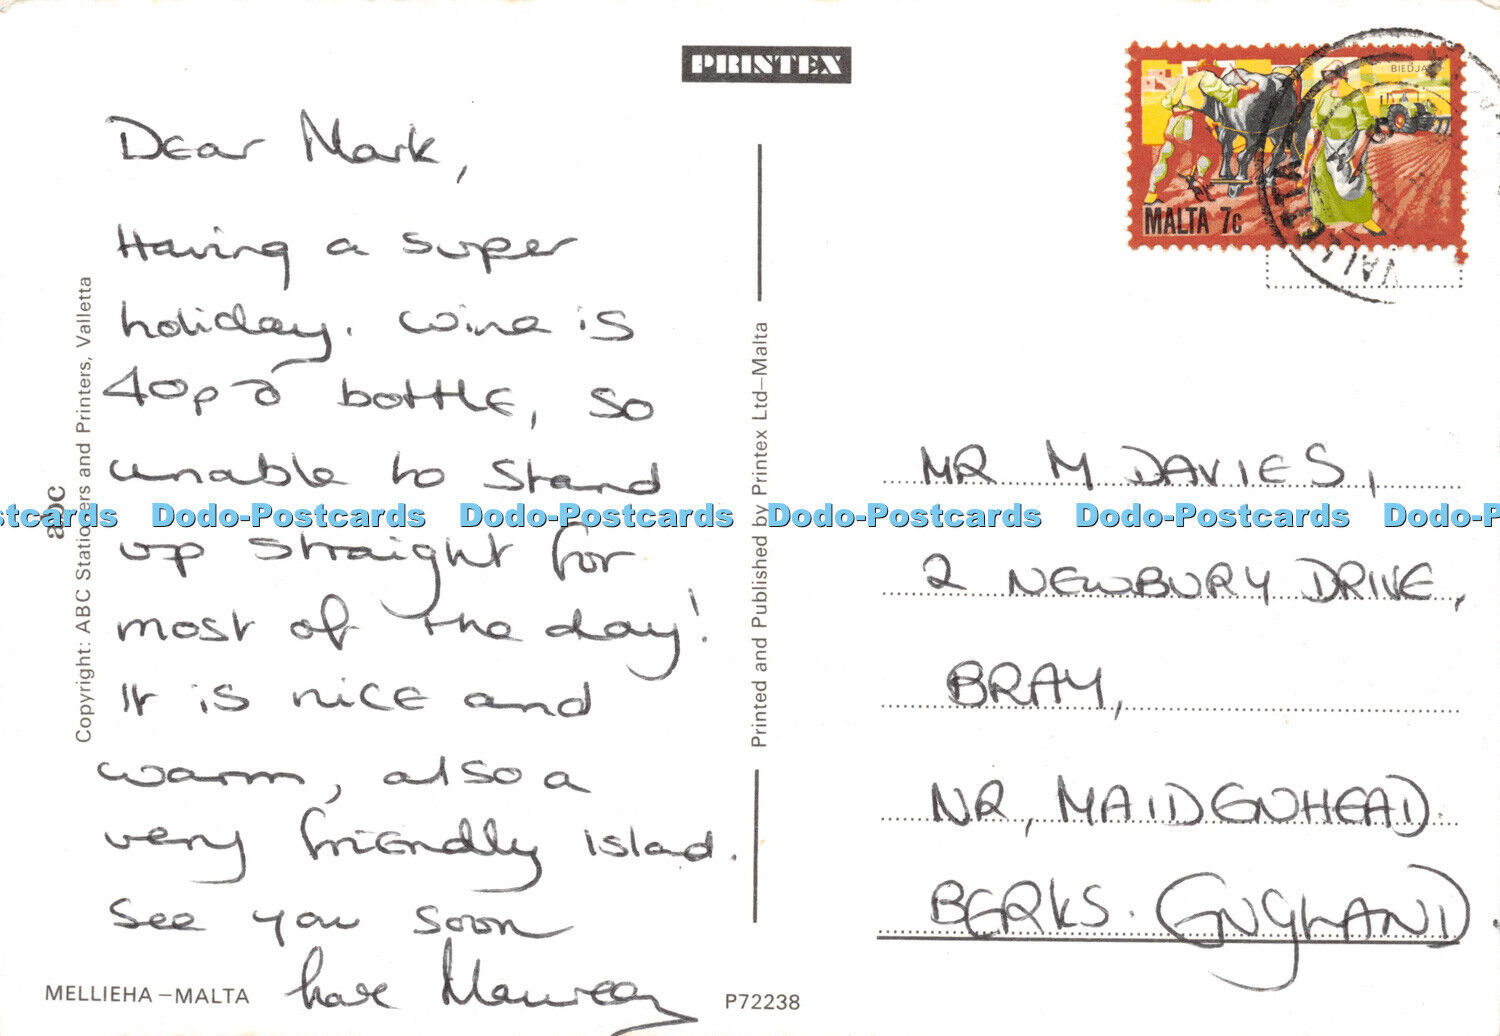 PRINTEX
BIEDJA
MALTA 7c
VALLETTA
Dear Mark,
Having a super
holiday. Wine is
40p a bottle, so
unable to stand
up straight for
most of the day!
It is nice and
warm, also a
very friendly islad.
See you soon
love Maureen
MR M DAVIES,
2 NEWBURY DRIVE,
BRAY,
NR, MAIDENHEAD.
BERKS. (ENGLAND).
abc
Copyright: ABC Stationers and Printers, Valletta
Printed and Published by Printex Ltd–Malta
MELLIEHA –MALTA
P72238
stcards Dodo-Postcards Dodo-Postcards Dodo-Postcards Dodo-Postcards Dodo-P